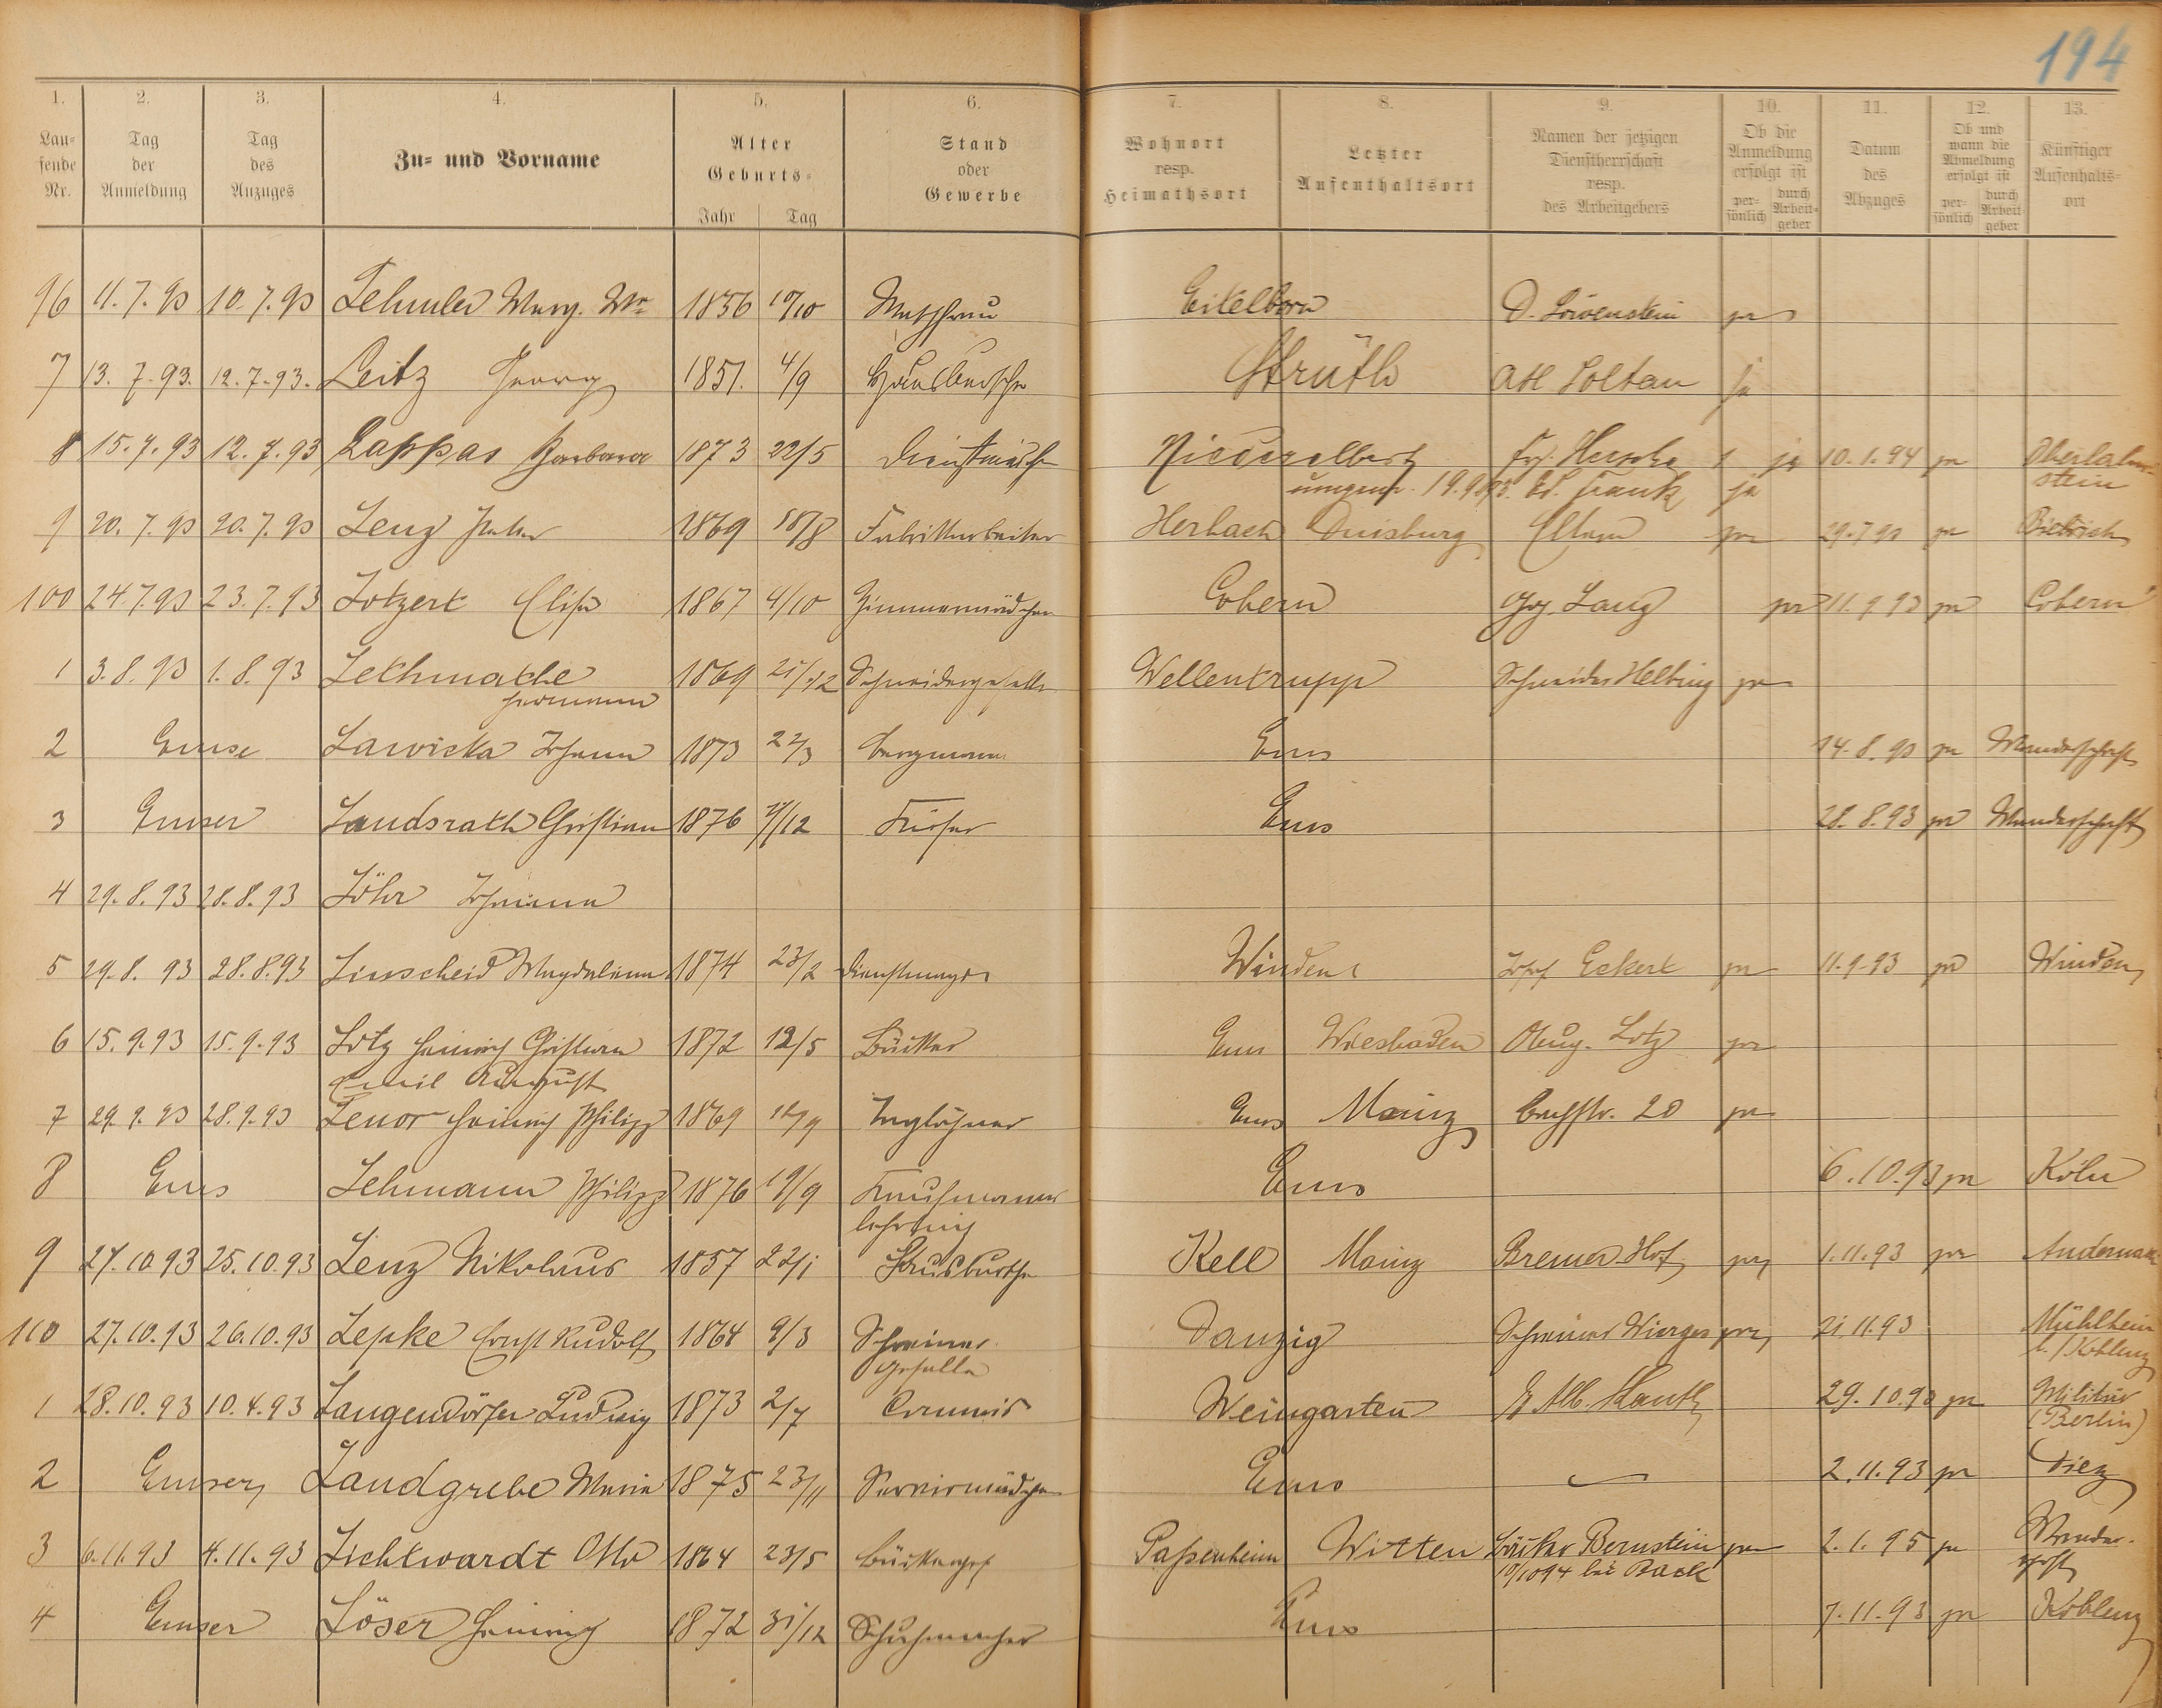 194
1. 2. 3. 4. 5. 6. 7. 8. 9. 10. 11. 12. 13.
Lau-fende Nr. Tag der Anmeldung Tag des Anzuges Zu- und Vorname Alter Geburts- Jahr Tag Stand oder Gewerbe Wohnort resp. Heimathsort Letzter Aufenthaltsort Namen der jetzigen Dienstherrschaft resp. des Arbeitgebers Ob die Anmeldung erfolgt ist per-sönlich durch Arbeit-geber Datum des Abzuges Ob und wann die Abmeldung erfolgt ist per-sönlich durch Arbeit-geber Künftiger Aufenthalts-ort
96 11.7.93 10.7.93 Lehmler Marg. 1856 Waschfrau Eitelborn D. Löwenstein ja
7 13.7.93. 12.7.93. Leitz Georg 1851. 4/9 Hausbursche Strüth Soltau ja
8 15.7.93 12.7.93 Lappas Barbara 1873 22/5 Niederelbert ja 10.1.94 ja Oberlahn-
19.9.93. Ed. Frank ja stein
9 20.7.93 20.7.93 Lenz Peter 1869 18/8 Fabrikarbeiter Herbach Duisburg Eltern ja 29.7.93 ja Biebrich
100 24.7.93 23.7.93 Lotzert Elise 1867 4/10 Zimmermädchen Cobern Lang ja 11.9.93 ja Cobern
1 3.8.93 1.8.93 Lethmathe 1869 21/12 Schneidergeselle Wellentrupp Schneider Helbing ja
Hermann
2 Emser Lawicka Johann 1873 22/3 Bergmann Ems 14.8.93 ja Wanderschaft
3 Emser Landsrath Christian 1876 Küfer Ems 28.8.93 ja Wanderschaft
4 29.8.93 28.8.93 Löhr Johanna
5 29.8.93 28.8.93 Linscheid Magdalena 1874 23/2 Dienstmagd Winden Josef Eckert ja 11.9.93 ja Winden
6 15.9.93 15.9.93 Lotz Heinrich Christian 1872 12/5 Bäcker Ems Wiesbaden Aug. Lotz ja
Emil August
7 29.9.93 28.9.93 Lenor Heinrich Philipp 1869 Taglöhner Ems Mainz Bachstr. 20 ja
8 Ems Lehmann Philipp 1876 19/9 Kaufmanns Ems 6.10.93 ja Köln
lehrling
9 27.10.93 25.10.93 Lenz Nikolaus 1857 22/1 Hausbursche Kell Mainz Bremer Hof ja 1.11.93 ja Andernach
110 27.10.93 26.10.93 Lepke Ernst Rudolf 1864 9/3 Schreiner Danzig Schreiner Wierges ja 21.11.93 Mühlheim
geselle b./Koblenz
1 28.10.93 10.4.93 Langendörfer Ludwig 1873 2/7 Commis Weingarten Alb. Kauth 29.10.93 ja Militär
(Berlin)
2 Emser Landgrebe Maria 1875 23/11 Serviermädchen Ems 2.11.93 ja Diez
3 6.11.93 4.11.93 Lichtwardt Otto 1864 23/5 Bäckerges Passenheim Witten Bäcker Bernstein ja 2.1.95 ja Wander-
bei Back schaft
4 Emser Löser Heinrich 1872 31/12 Schuhmacher Ems 7.11.93 ja Koblenz